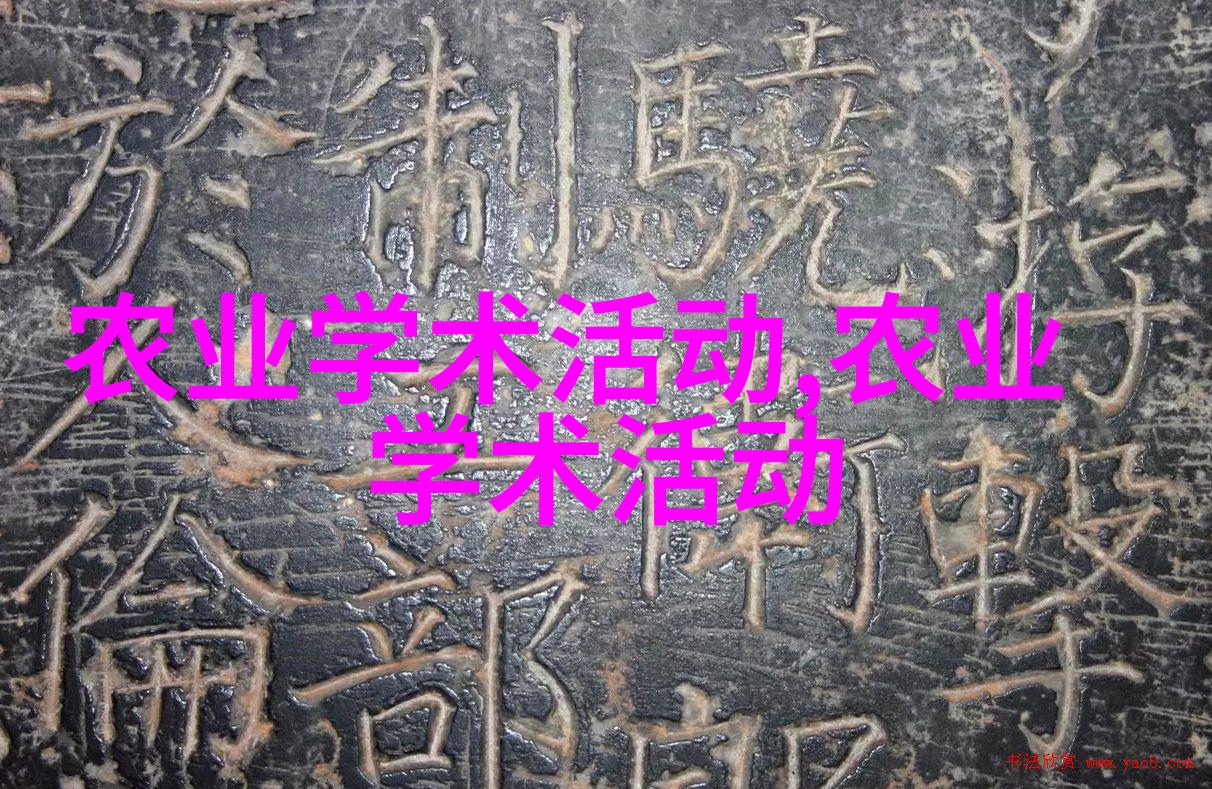 农业学术活动,农业
学术活动
將擊
驍衛
制
部
於人倫
书法欣赏 www.yac8.com